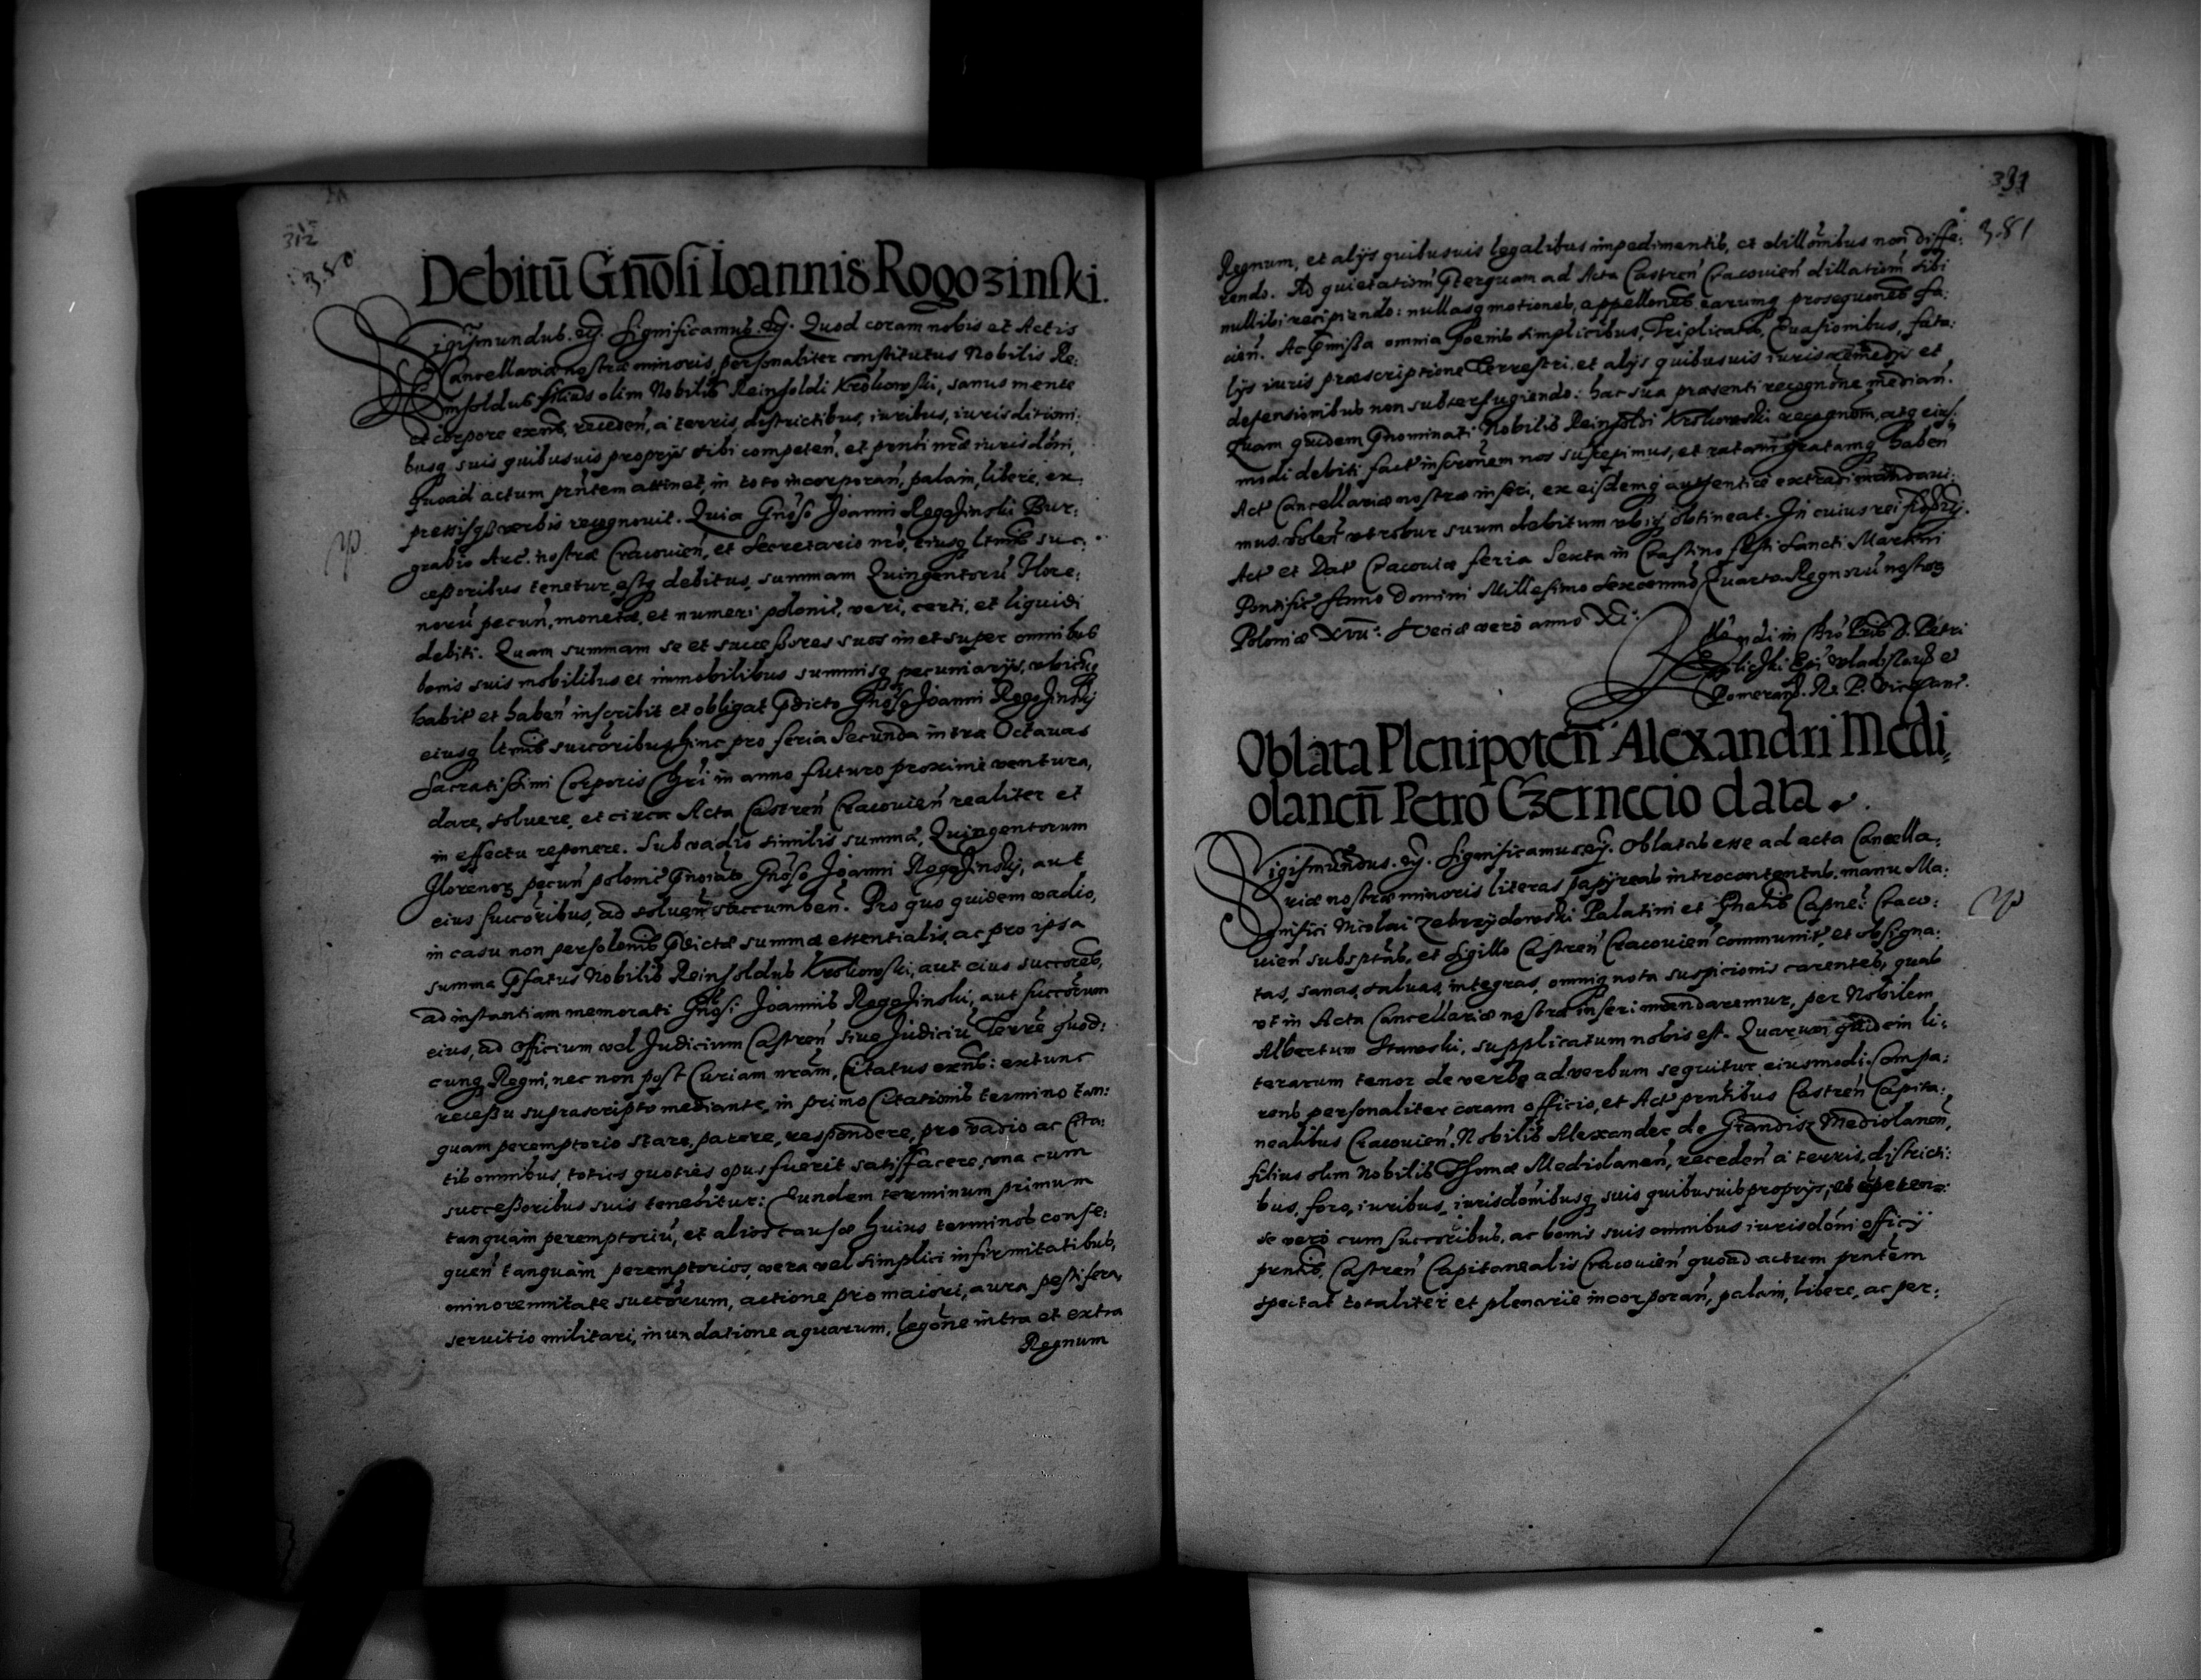 312
380
Debitū Gn̄osi Ioannis Rogozinski.
Sigismundus. etc. Significamus. etc. Quod coram nobis et Actis
Cancellariæ nostræ minoris, personaliter constitutus Nobilis Re:
insoldus filius olim Nobilis Reinsoldi Krokowski, sanus mente
et corpore exñs, receden̄, à terris, districtibus, iuribus, iurisditioni:
busq suis quibusuis proprijs sibi competen̄, et pñti nr̄æ iurisdōni,
quoad actum pñtem attinet, in toto incorporan̄, palam, libere, ex
pressisq verbis recognouit. Quia Gñoso Joanni Rogozinski Bur:
grabio Arc. nostræ Cracouien̄, et Secretario nr̄o, eiusq ltimis suc:
cessoribus tenetur, estq debitus, summam Quingentorū Flore:
norū pecun̄, monetæ, et numeri polonic̄, veri, certi, et liquidi
debiti. Quam summam se et successores suos in et super omnibus
bonis suis mobilibus et immobilibus summisq pecuniarijs, vbicuq
habit̄ et haben̄ inscribit et obligat pdicto Gñoso Joanni Rogozinskij
eiusq ltimis succoribus, hinc pro feria Secunda intra Octauas
Sacratissimi Corporis Chri in anno futuro proximè ventura,
dare, soluere, et circa Acta Castren̄ Cracouien̄ realiter et
in effectu reponere. Sub vadio similis summæ, Quingentorum
Florenorꝫ pecun̄ polonic̄ pnoiāto Gñoso Joanni Rogozinskij, aut
eius succoribus, ad soluen̄ succumben̄. Pro quo quidem vadio,
in casu non persolōnis pdictæ summæ essentialis, ac pro ipsa
summa pfatus Nobilis Reinsoldus Krokowski, aut eius succores,
ad instantiam memorati Gñosi Joannis Rogozinski, aut succorum
eius, ad Officium vel Judicium Castren̄ siue Judiciū Terrre quod:
cunq Regni, nec non post Curiam nr̄am, Citatus exñs: extunc
recessu suprascripto mediante, in primo Citationis termino tan:
quam peremptorio stare, parere, respondere, pro vadio ac Cita:
tis omnibus, toties quoties opus fuerit satisfacere, vna cum
successoribus suis tenebitur: Eundem terminum primum
tanquàm peremptoriū, et alios causæ huius terminos conse:
quen̄ tanquàm peremptorios, vera vel simplici infirmitatibus,
minorennitate succorum, actione pro maiori, aura pestifera,
seruitio militari, inundatione aquarum, legōne intra et extra
Regnum
331
381
Regnum, et alijs quibusuis legalibus impedimentis, et dillōnibus non diffe:
rendo. Ad quietationē pterquam ad Acta Castren̄ Cracouien̄ dillationē sibi
nullibi recipiendo: nullasq motiones, appellones earumq prosequones fa:
cien̄. Ac pmissa omnia poenis simplicibus, Triplicatis, Euasionibus, fata:
lijs iuris præscriptione Terrestri, et alijs quibusuis iuris remedijs et
defensionibus non subterfugiendo: hac sua præsenti recognōne median̄.
Quam quidem pnominati Nobilis Reinsoldi Krokowski recognōm, atq eius:
modi debiti fact̄ inscrōnem nos suscepimus, et ratam gratamq haben̄
Act̄ Cancellariæ nostræ inseri, ex eisdemq authenticè extradi mandaui:
mus. Volen̄ vt robur suum debitum vbiq obtineat. In cuius rei fidem etc.
Act̄ et Dat̄ Cracouiæ feria Sexta in Crastino festi Sancti Martini
Pontific̄ Anno Domini Millesimo Sexcenmo Quarto. Regnorū nostrorꝫ
Poloniæ XVII: Sueciæ verò anno XI:
Pomeran̄. R. P. Vicecanc̄.
Oblata Plenipoten̄ Alexandri Medi,,
olanen̄ Petro Czerneccio data.
Sigismundus. etc. Significamus. etc. Oblatas esse ad acta Cancella:
riæ nostræ minoris literas papyreas introcontentas, manu Ma:
gnifici Nicolai Zebrzydowski Palatini et Gñalis Capnei Craco:
uien̄ subsptas, et Sigillo Castren̄ Cracouien̄ communit̄, et obsigna:
tas, sanas, saluas, integras, omniq nota suspicionis carentes, quas
vt in Acta Cancellariæ nostræ inseri mandaremus, per Nobilem
Albertum Stanoski, supplicatum nobis est. Quarum quidem li:
terarum tenor de verbo ad verbum sequitur eiusmodi. Compa:
rens personaliter coram officio, et Act̄ pñtibus Castren̄ Capita:
nealibus Cracouien̄, Nobilis Alexander de Grandis Mediolanen̄,
filius olim Nobilis Thomæ Mediolanen̄, receden̄ à terris, districti:
bus, foro, iuribus, iurisdōnibusq suis quibusuis proprijs, et cpeten:
se verò cum succoribus, ac bonis suis omnibus iurisdōni officij
pñtis, Castren̄ Capitanealis Cracouien̄ quoad actum pñtem
spectat totaliter et plenariè incorporan̄, palàm, libere, ac per: